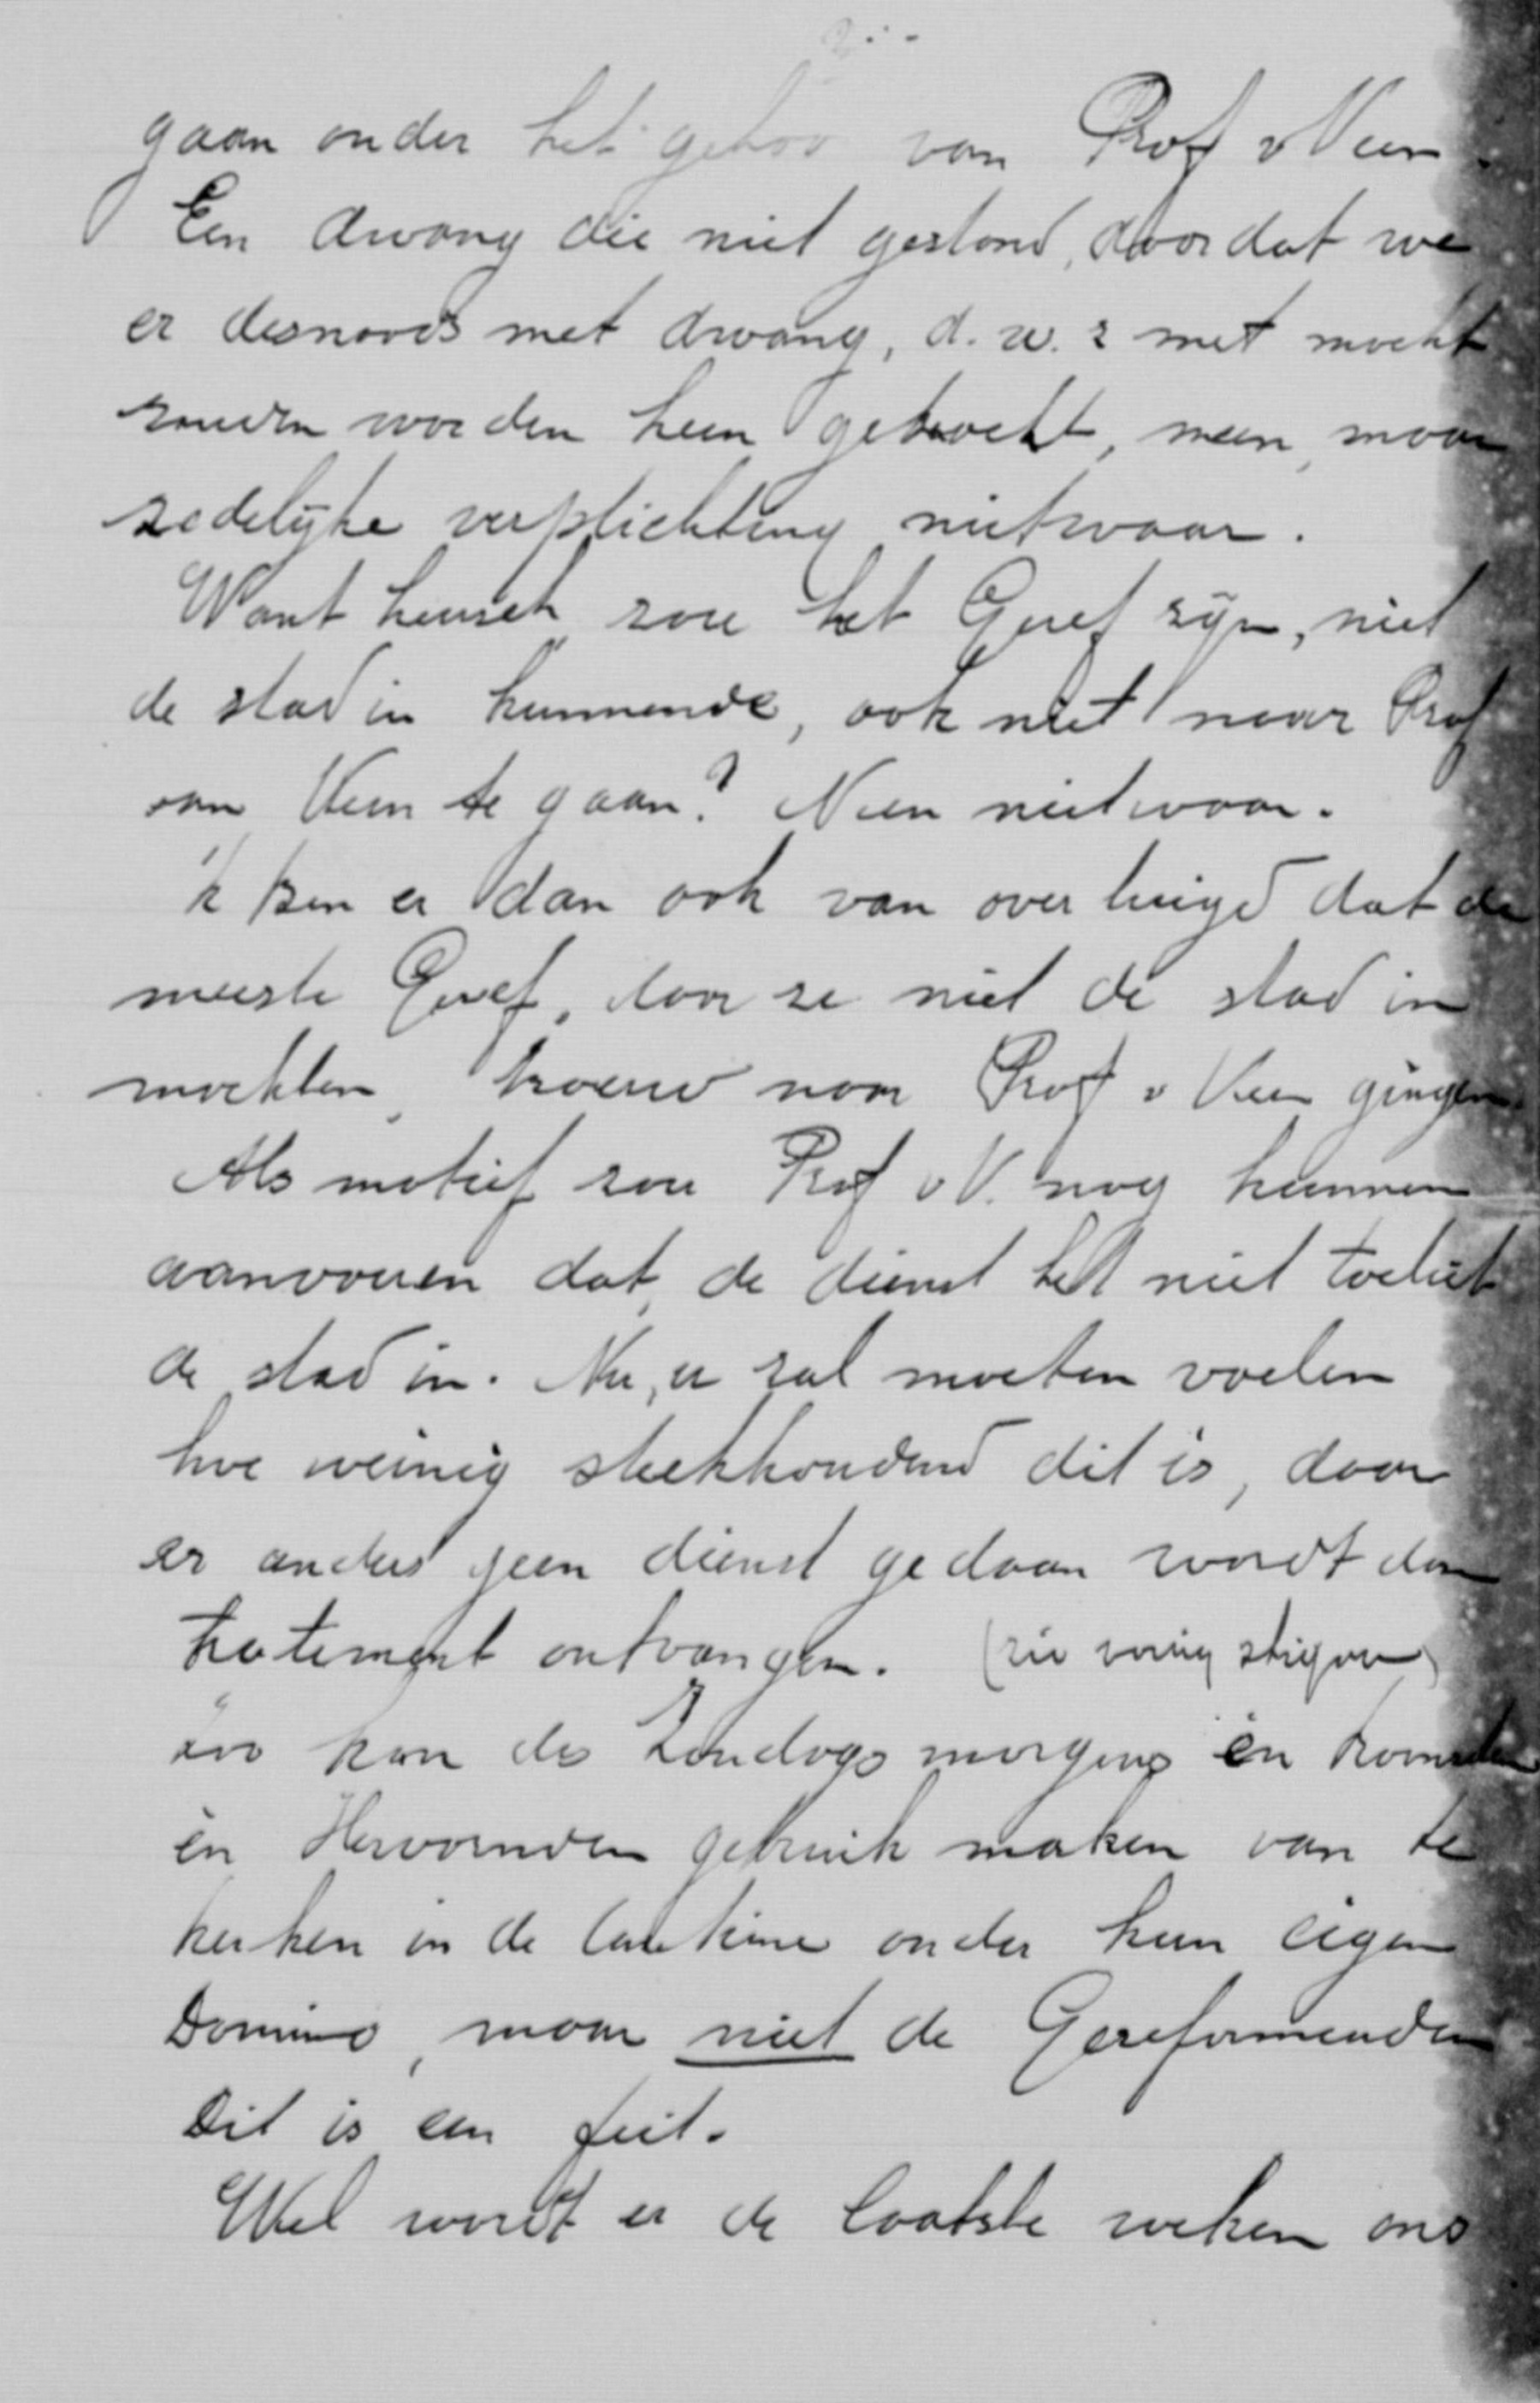 gaan onder het gehoor van Prof v Veen.
Een dwang die niet gestond, doordat we
er desnoods met dwang, d.w.z met macht
zouden worden heen gebracht, neen, maar
zedelijke verplichting nietwaar.
Want heusch zou het Geref zijn, niet
de stad in kunnende, ook niet naar Prof
van Veen te gaan? Neen nietwaar.
'k ben er dan ook van overtuigd dat de
meeste Geref, daar ze niet de stad in
mochten, trouw naar Prof v Veen gingen.
Als motief zou Prof v V. nog kunnen
aanvoeren dat de dienst het niet toeliet
de stad in. Nu, u zal moeten voelen
hoe weinig steekhoudend dit is, daar
er anders geen dienst gedaan wordt dan
tractement ontvangen. (zie vorig schrijven)
Zoo kan des Zondags morgens èn Roomschen
èn Hervormden gebruik maken van te
kerken in de Cantine onder hun eigen
Domino, maar niet de Gereformeerden
Dit is een feit.
Wel wordt er de laatste weken ons